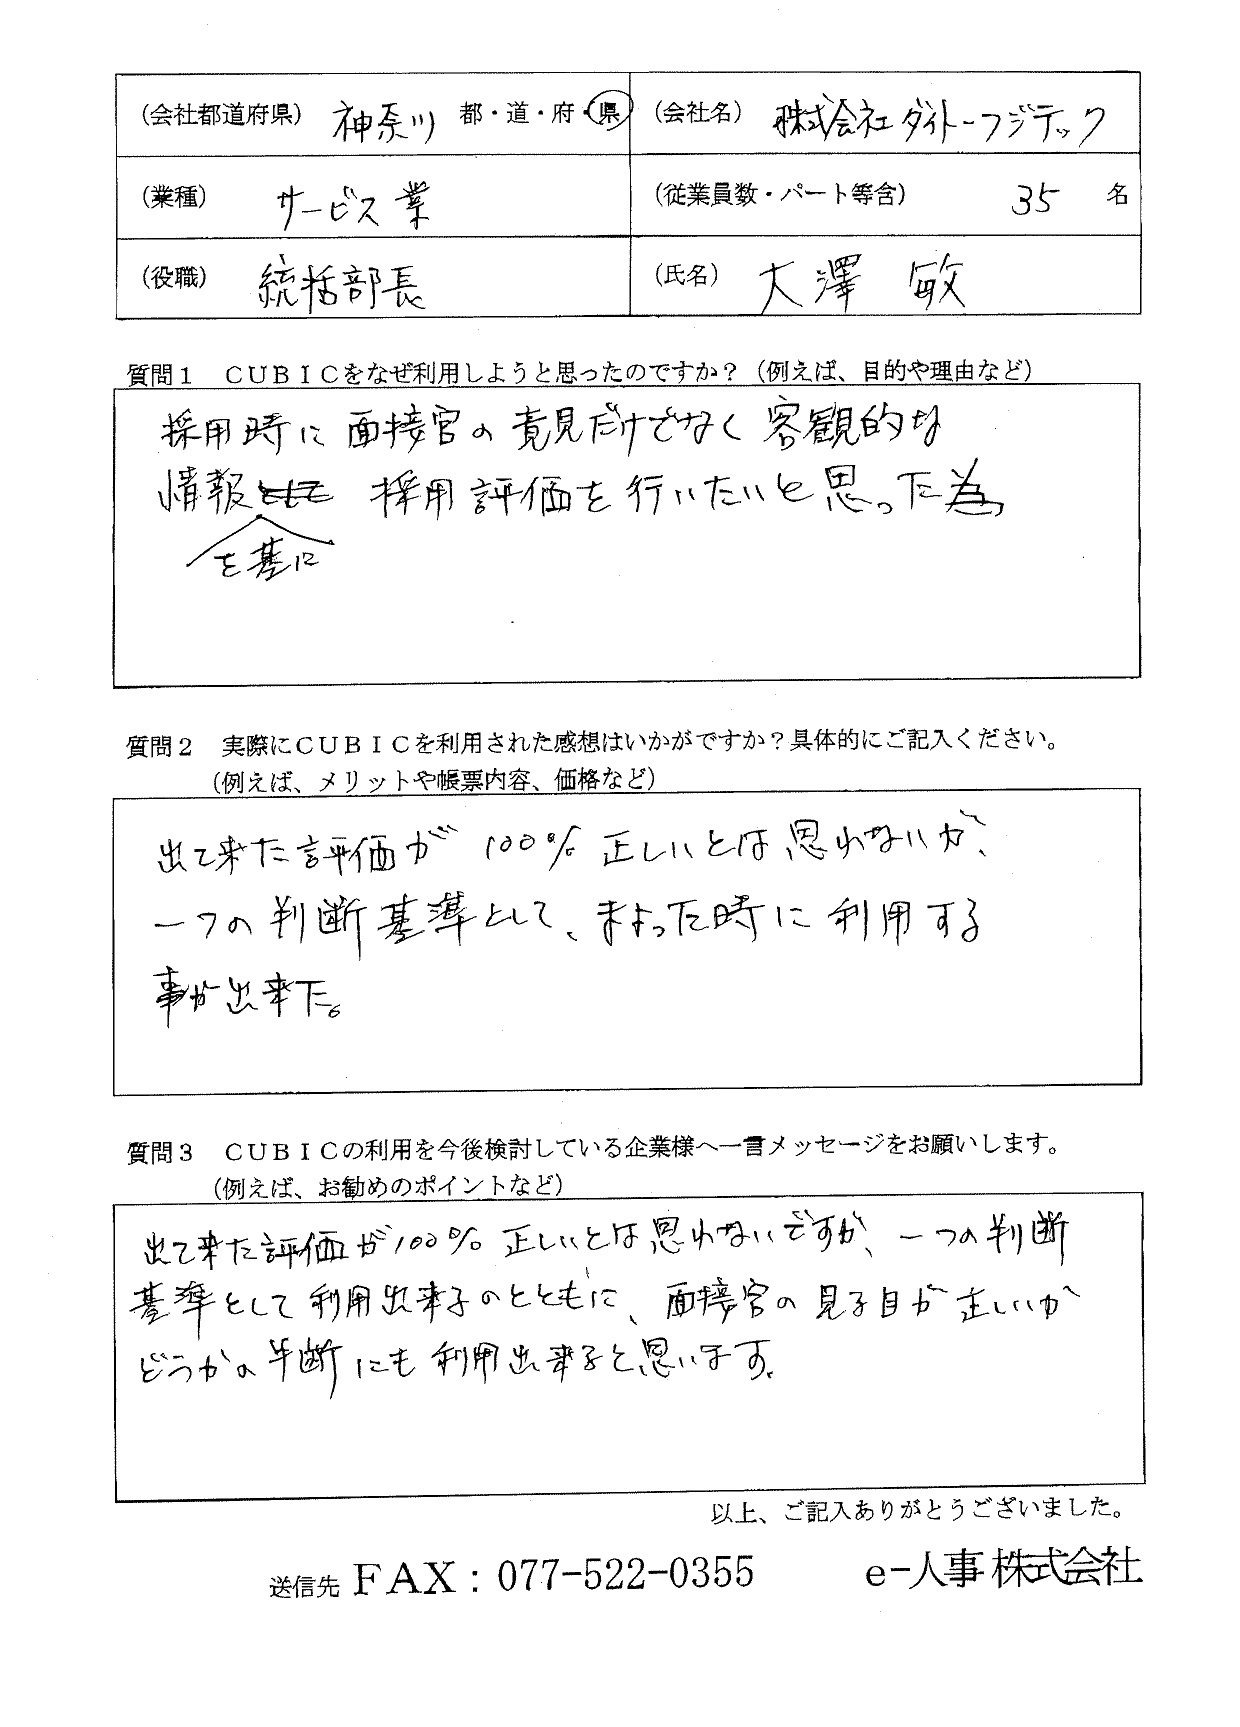 (会社都道府県) 神奈川 都・道・府・県 (会社名) 株式会社ダイトーフジテック
(業種) サービス業 (従業員数・パート等含) 35 名
(役職) 統括部長 (氏名) 大澤 敏
質問1 CUBICをなぜ利用しようと思ったのですか?(例えば、目的や理由など)
採用時に面接官の意見だけでなく客観的な
情報として採用評価を行いたいと思った為。
を基に
質問2 実際にCUBICを利用された感想はいかがですか?具体的にご記入ください。
(例えば、メリットや帳票内容、価格など)
出て来た評価が100%正しいとは思わないが、
一つの判断基準として、まよった時に利用する
事が出来た。
質問3 CUBICの利用を今後検討している企業様へ一言メッセージをお願いします。
(例えば、お勧めのポイントなど)
出て来た評価が100%正しいとは思わないですが、一つの判断
基準として利用出来るのとともに、面接官の見る目が正しいか
どうかの判断にも利用出来ると思います。
以上、ご記入ありがとうございました。
送信先 FAX:077-522-0355 e-人事株式会社